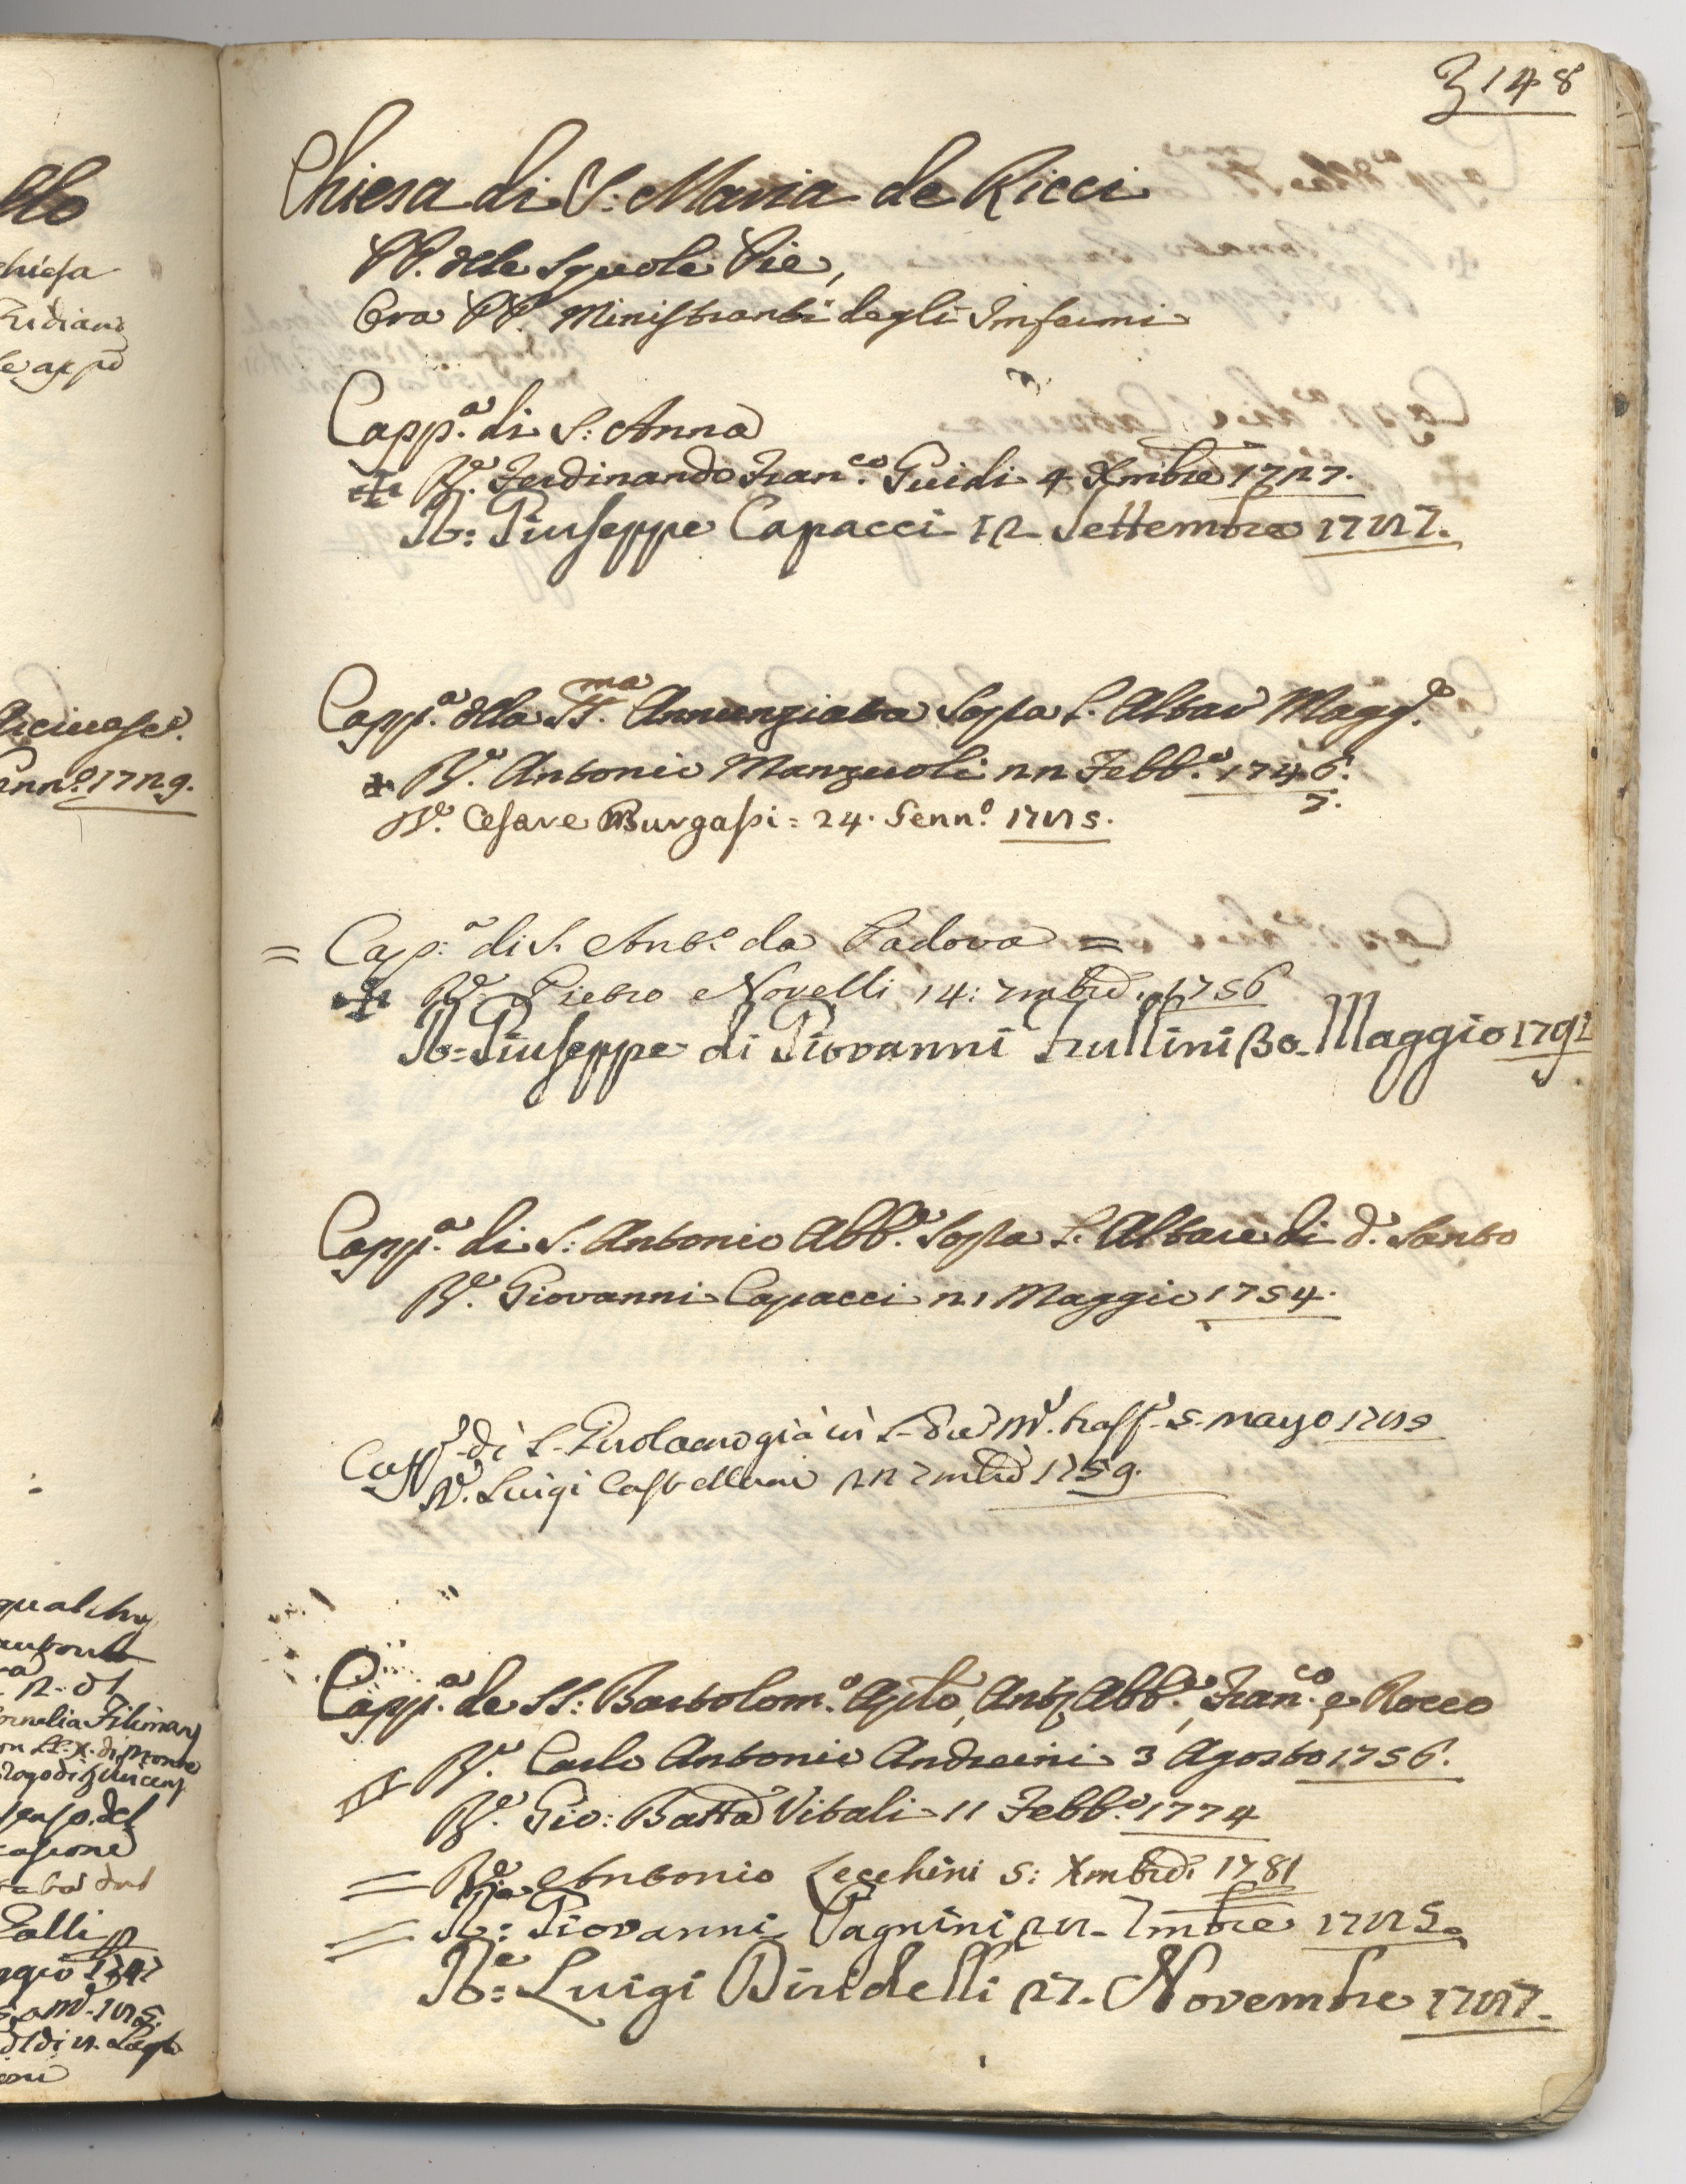 148
Chiesa di S: Maria de Ricci
PP. delle Squole Pie,
Ora PP. Ministranti degli Infermi
Capp.a di S: Anna
R.e Ferdinando Fran.co Guidi 4 Xmbre 1727.
R.e Giuseppe Capacci 12 Settembre 1787.
Capp.a della SS.ma Annunziata Sopra l'Altar Magg.e
R.e Antonio Manzuoli 22 Febb.o 1746.
7.
R.e Cesare Burgassi = 24. Genn.o 1785.
= Capp.a di S. Ant.o da Padova =
R.e Pietro Novelli 14: 7mbre 1756
R.e Giuseppe di Giovanni Trullini 30. Maggio 1791
Capp.a di S: Antonio Abb.e Sopra l'Altare di d.o Santo
R.e Giovanni Capacci 21 Maggio 1754.
Capp.a di S. Girolamo già in S. 5. Maggio 1785
R.e Luigi Castellani 22 7mbre 1759.
Capp.a de SS: Bartolom.o Aplo, Ant.o Abb.e, Fran.co, e Rocco
R.e Carlo Antonio Andreini 3 Agosto 1756.
R.e Gio: Batta Vitali 11 Febb.o 1774
= R.e Antonio Zecchini 5: Xmbre 1781
= R.e Giovanni Pagnini 28. 7mbre 1785.
R.e Luigi Bindelli 27. Novembre 1787.
llo
chiesa
Genn.o 1729.